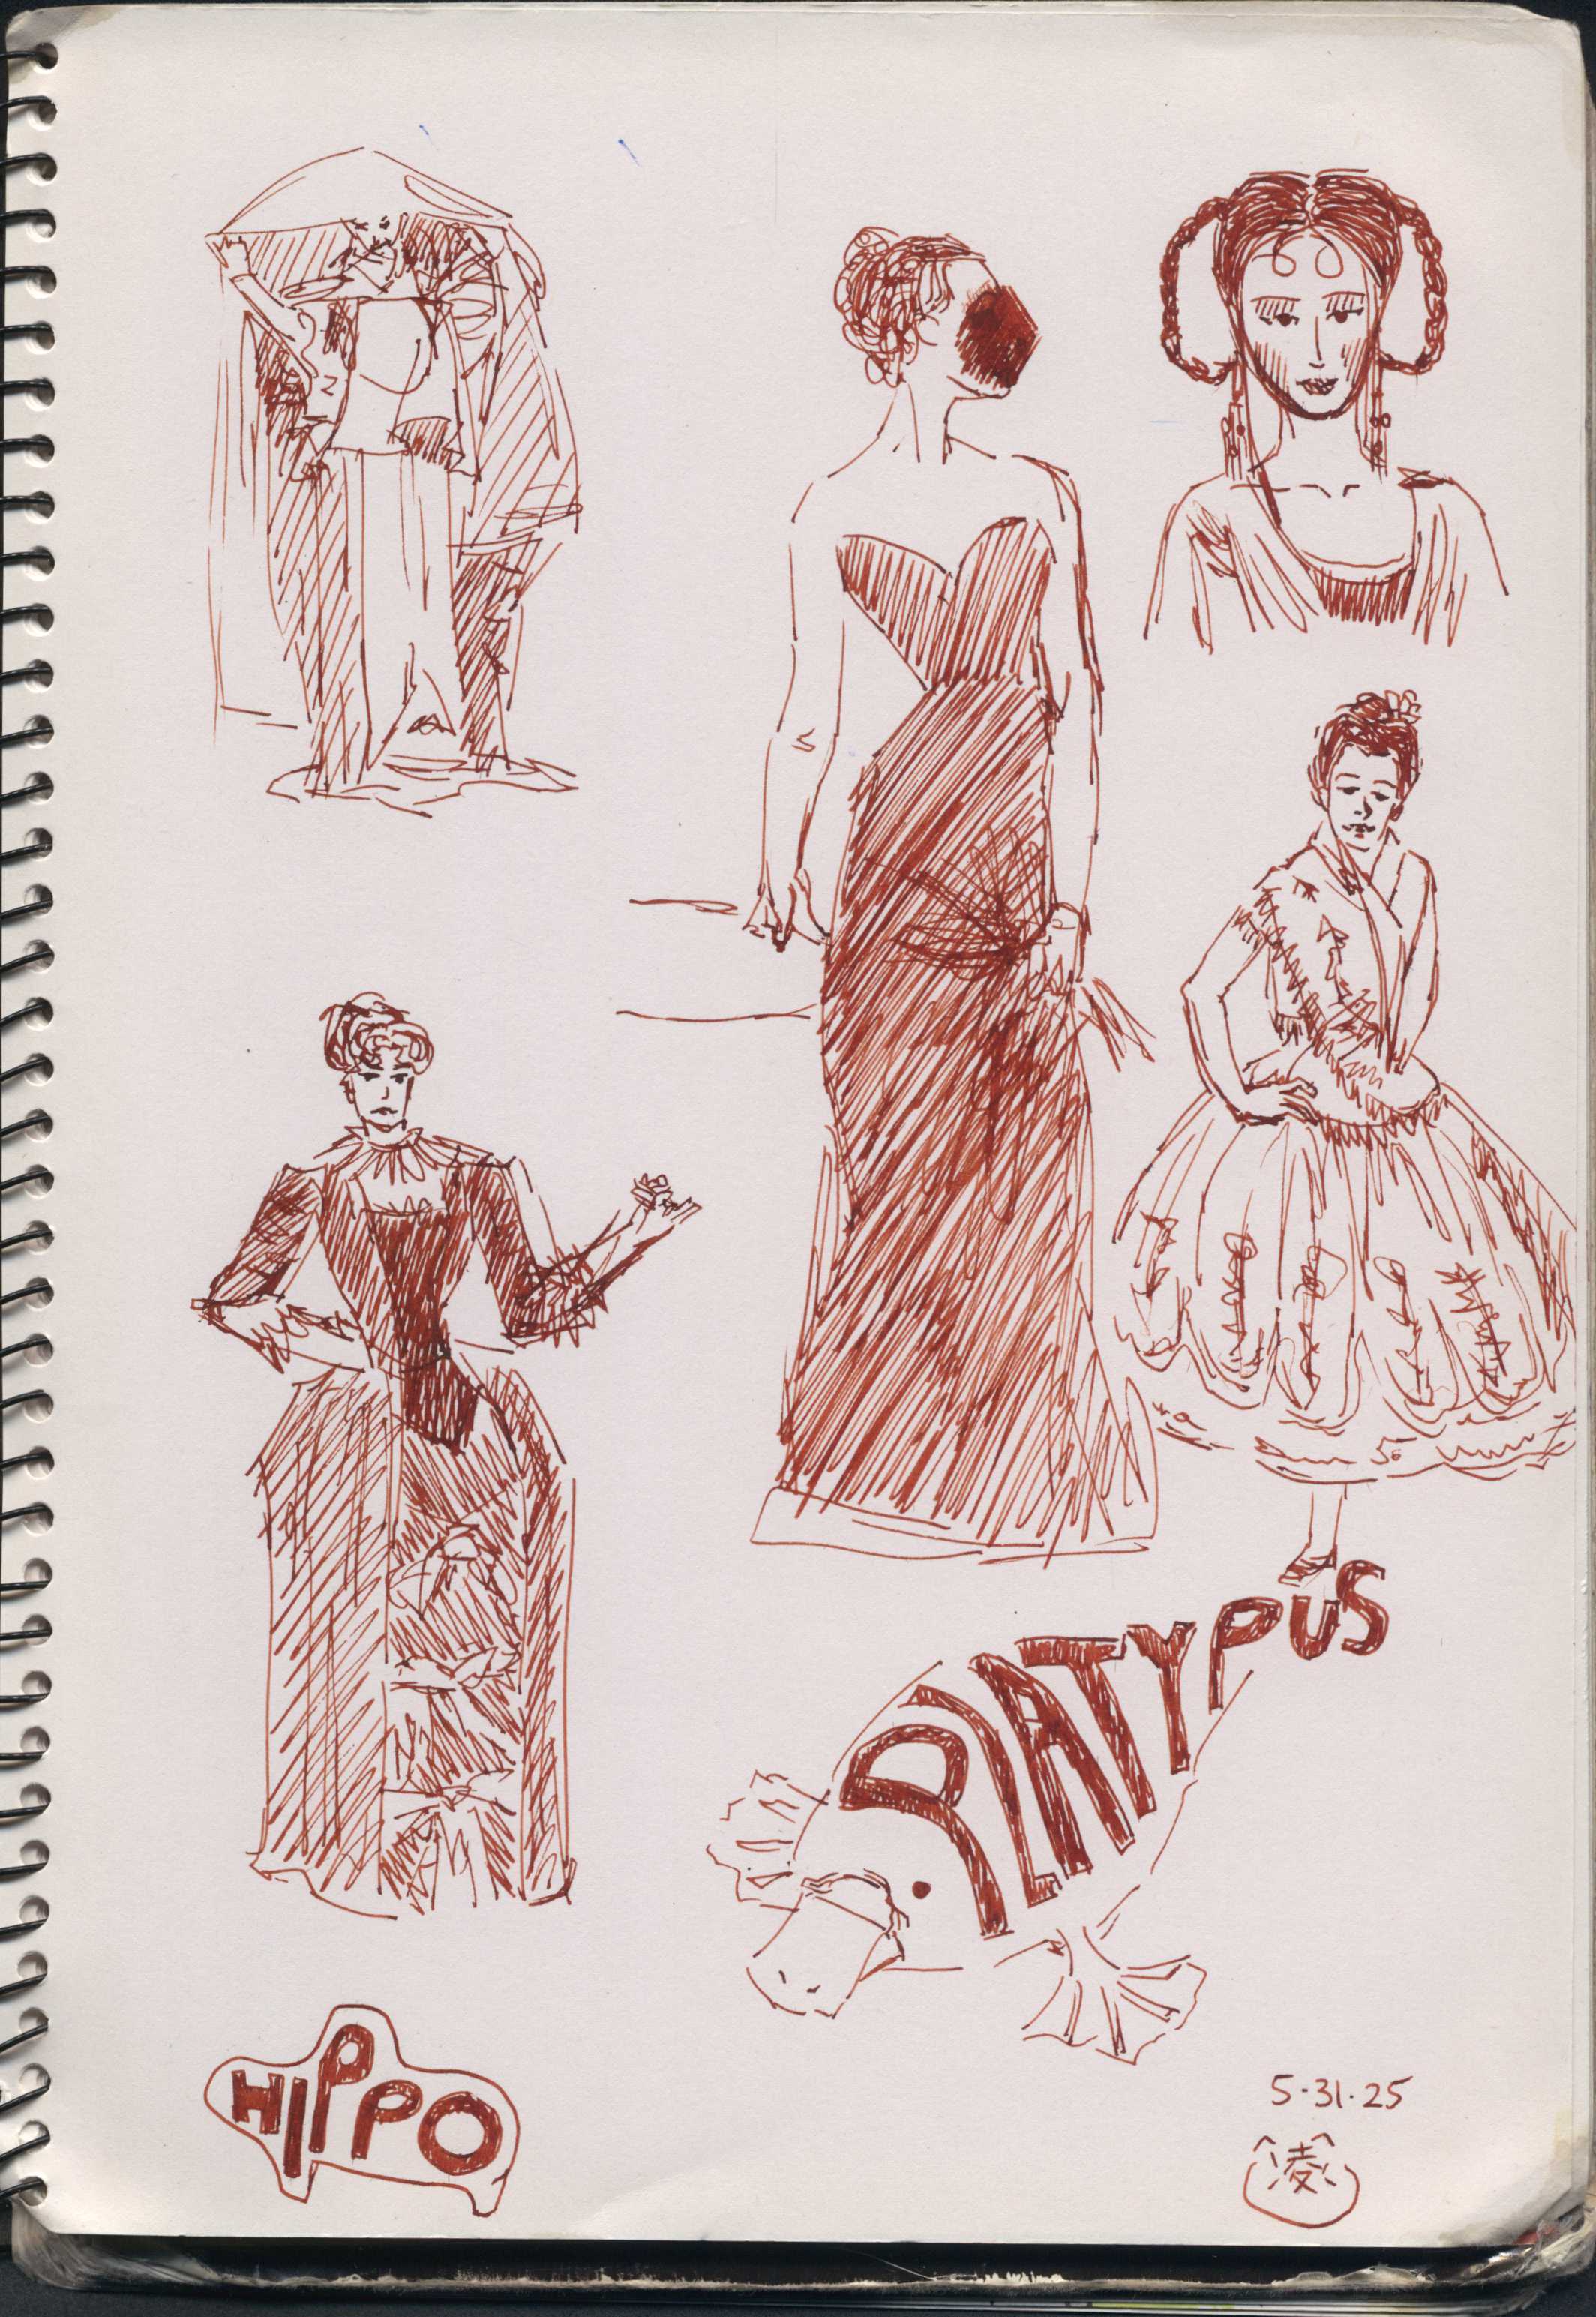 PLATYPUS
HIPPO
5·31·25
凌